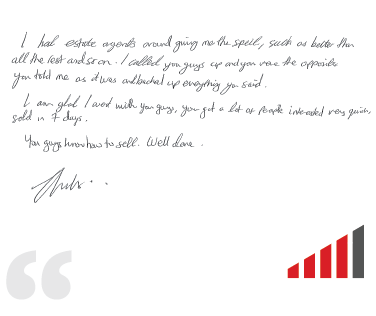 I had estate agents around giving me the speil, such as better than
all the rest and so on. I called you guys up and you were the opposite
you told me as it was and backed up everything you said.
I am glad I went with you guys, you got a lot of people interested very quick,
sold in 7 days.
You guys know how to sell. Well done.